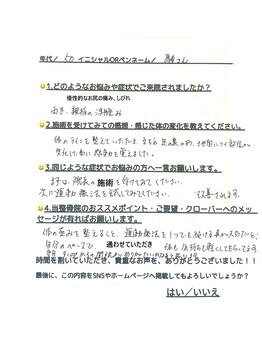 年代/ 50 イニシャルORペンネーム/
❁1.どのようなお悩みや症状でご来院されましたか?
慢性的なお尻の痛み、しびれ
両手、親指の
❁2.施術を受けてみての感想・感じた体の変化を教えてください。
体のラインを整えていただき、
変化した事に感動を覚えました。
❁3.同じような症状でお悩みの方へ一言お願いします。
まずは、院長の施術を受けてみてください。
次に運動療法を試してみてください。 改善されます。
❁4.当整骨院のおススメポイント・ご要望・クローバーへのメッセージが有ればお願いします。
体の歪みを整えること、運動療法を1つでも続ける事が大切だと
自分のペースで、通わせていただき 体も気持ちも軽くしてもらってます。
時間を割いていただき、貴重なお声を、ありがとうございました!!
最後に、この内容をSNSやホームページへ掲載してもよろしいでしょうか?
はい/いいえ